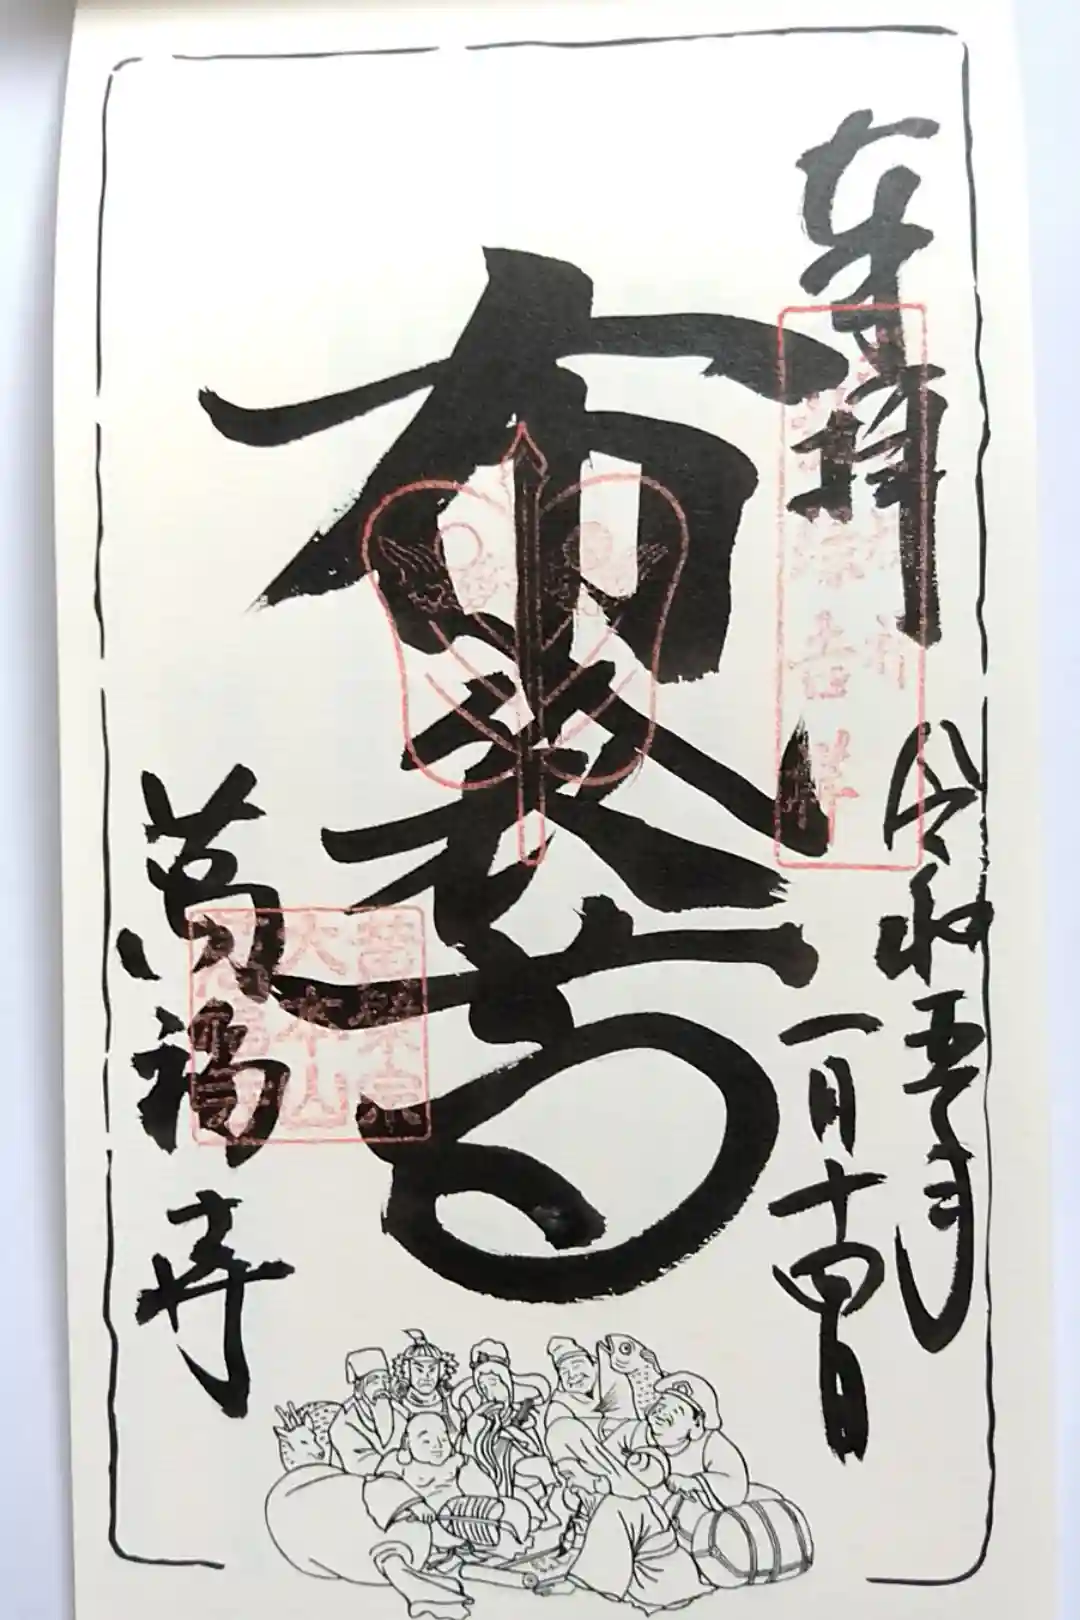 奉拝
令和五年
一月十四日
布袋尊
萬福寺
黄檗宗
大本山
萬福寺